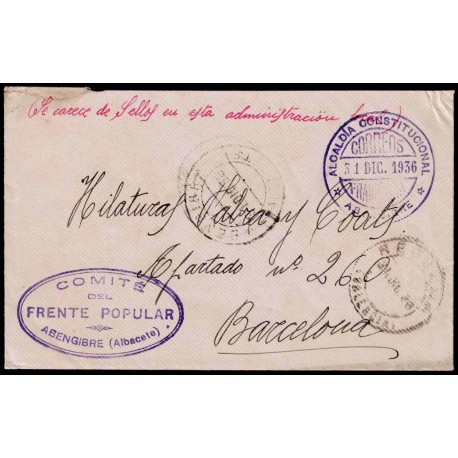 Se carece de Sellos en esta administración
ALCALDÍA CONSTITUCIONAL
CORREOS
31 DIC. 1936
FRANQUICIA
ABENGIBRE
Hilaturas Fabra y Coats
Apartado nº 260
Barcelona
COMITÉ
DEL
FRENTE POPULAR
ABENGIBRE (Albacete)